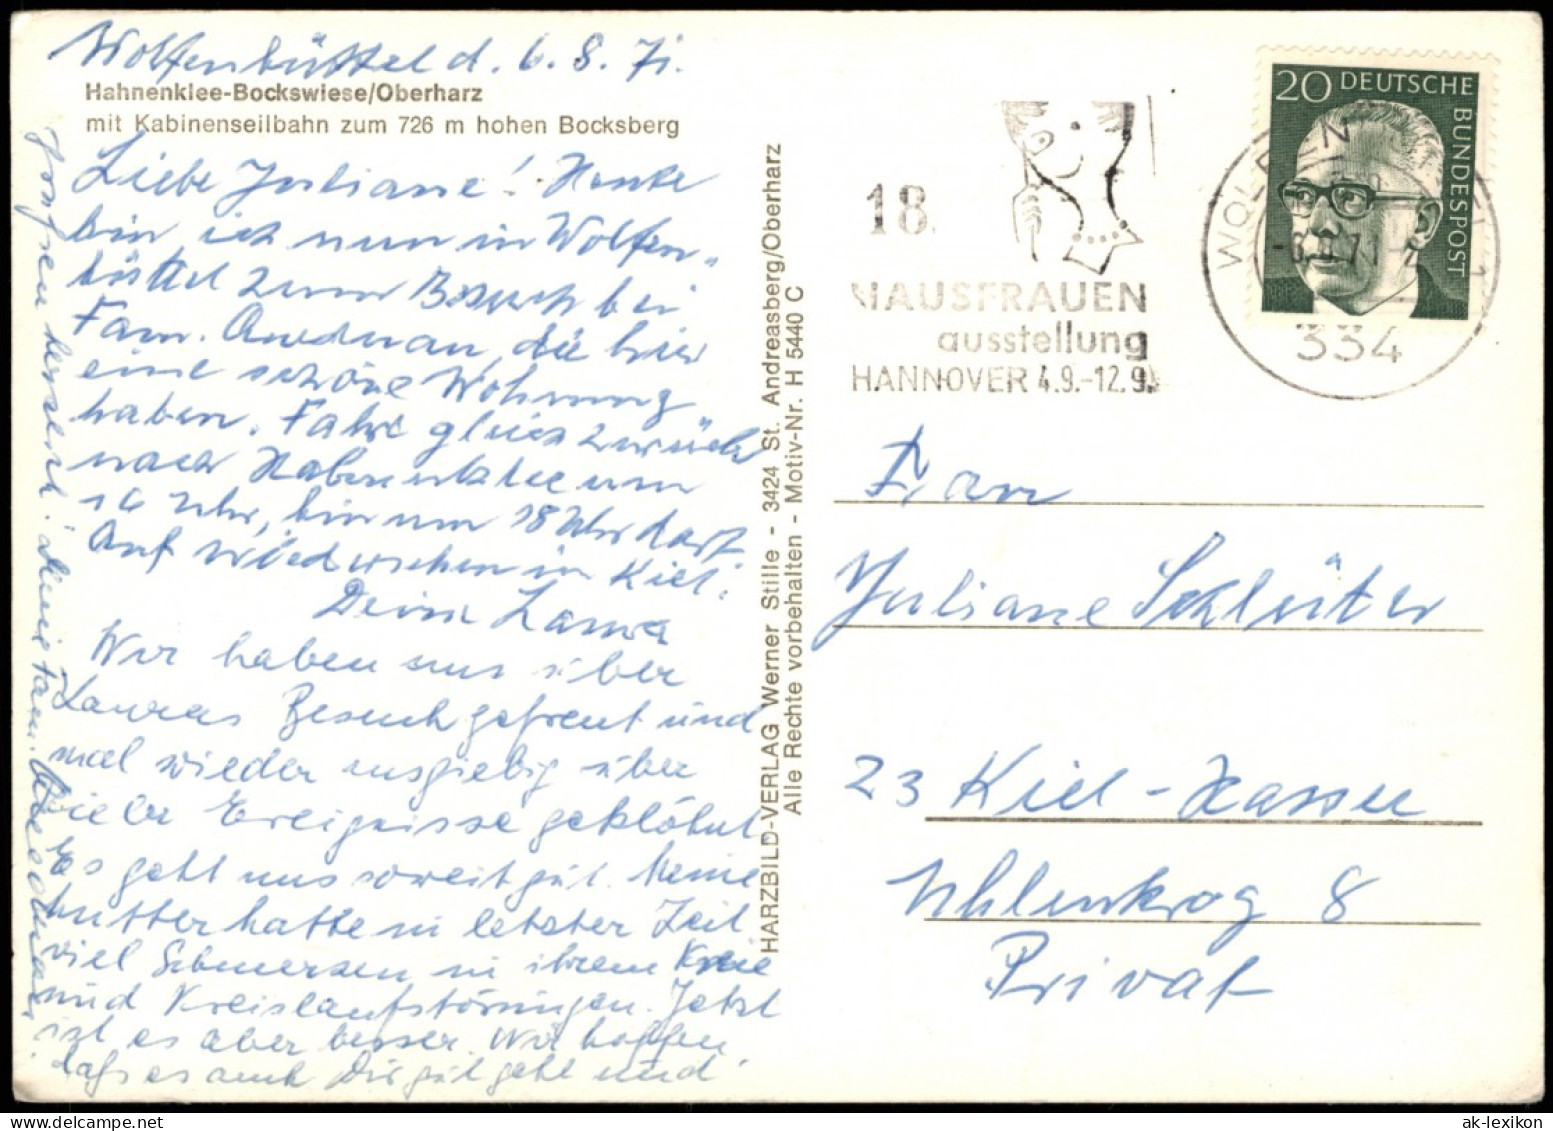 Wolfenbüttel d. 6. 8. 71.
Hahnenklee-Bockswiese/Oberharz
mit Kabinenseilbahn zum 726 m hohen Bocksberg
Liebe Juliane! Heute
bin ich nun in Wolfen-
büttel zum Besuch bei
Fam. die hier
eine schöne Wohnung
haben. Fahre gleich zurück
nach Hahnenklee um
16 Uhr, bin um 18 Uhr dort.
Auf Wiedersehen in Kiel.
Deine Laura
Wir haben uns über
Lauras Besuch gefreut und
mal wieder ausgiebig über
viele Ereignisse geklöhnt
Es geht uns soweit gut. Meine
Mutter hatte in letzter Zeit
viel Schmerzen in ihrem Knie
und Kreislaufstörungen. Jetzt
ist es aber besser. Wir hoffen,
daß es auch Dir gut geht und
grüßen herzlich! Deine Fam.
HARZBILD-VERLAG Werner Stille - 3424 St. Andreasberg/Oberharz
Alle Rechte vorbehalten - Motiv-Nr. H 5440 C
18.
HAUSFRAUEN
ausstellung
HANNOVER 4.9.-12.9.
20 DEUTSCHE
BUNDESPOST
334
Frau
Juliane Schlüter
23 Kiel-Hassee
Uhlenkrog 8
Privat
ak-lexikon.com